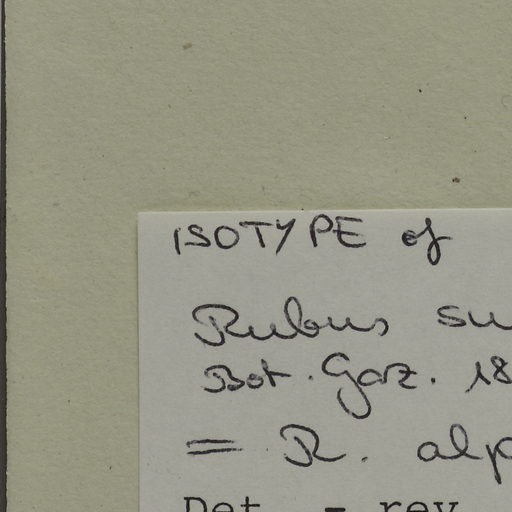 ISOTYPE of
Rubus su
Bot. Gaz. 18
= R. alp
Det. - rev.